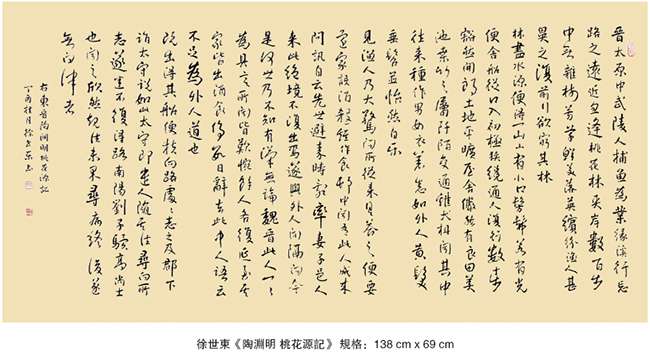 晉太原中武陵人捕魚為業緣溪行忘
路之遠近忽逢桃花林夾岸數百步
中無雜樹芳草鮮美落英繽紛漁人甚
異之復前行欲窮其林
林盡水源便得一山山有小口髣髴若有光
便舍船從口入初極狹纔通人復行數十步
豁然開朗土地平曠屋舍儼然有良田美
池桑竹之屬阡陌交通雞犬相聞其中
往來種作男女衣著悉如外人黃髮
垂髫並怡然自樂
見漁人乃大驚問所從來具答之便要
還家設酒殺雞作食村中聞有此人咸來
問訊自云先世避秦時亂率妻子邑人
來此絕境不復出焉遂與外人間隔問今
是何世乃不知有漢無論魏晉此人一一
為具言所聞皆歎惋餘人各復延至其
家皆出酒食停數日辭去此中人語云
不足為外人道也
既出得其船便扶向路處處志之及郡下
詣太守說如此太守即遣人隨其往尋向所
志遂迷不復得路南陽劉子驥高尚士
也聞之欣然規往未果尋病終後遂
無問津者
右東晉陶淵明桃花源記
丁酉桂月徐世東書
徐世東《陶淵明 桃花源記》 規格：138 cm x 69 cm